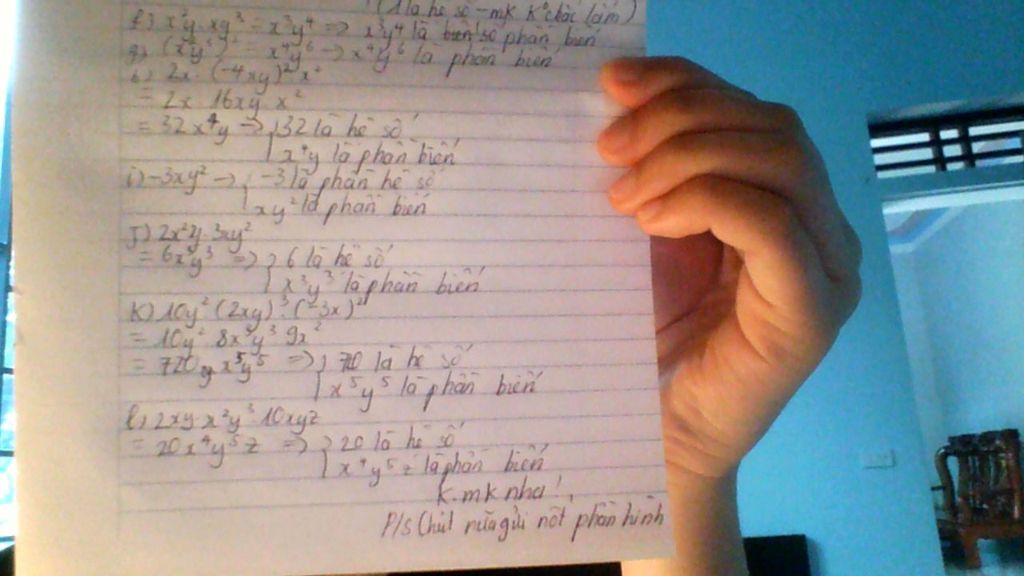 (1 là hệ số - mk k° chắc lắm)
f) x²y . xy³ = x³y⁴ => x³y⁴ là biến số phần biến
g) (x²y³)² = x⁴y⁶ -> x⁴y⁶ là phần biến
h) 2x . (-4xy)² x²
= 2x 16xy x²
= 32x⁴y -> { 32 là hệ số
x⁴y là phần biến
i) -3xy² -> { -3 là phần hệ số
xy² là phần biến
J) 2x²y . 3xy²
= 6x³y³ => { 6 là hệ số
x³y³ là phần biến
K) 10y² (2xy)³ . (-3x)²
= 10y² . 8x³y³ 9x²
= 720 x⁵y⁵ => { là hệ số
x⁵y⁵ là phần biến
l) 2xy . x²y³ . 10xyz
= 20x⁴y⁵z => { 20 là hệ số
x⁴y⁵z là phần biến
K mk nha!
P/s Chút nữa gửi nốt phần hình